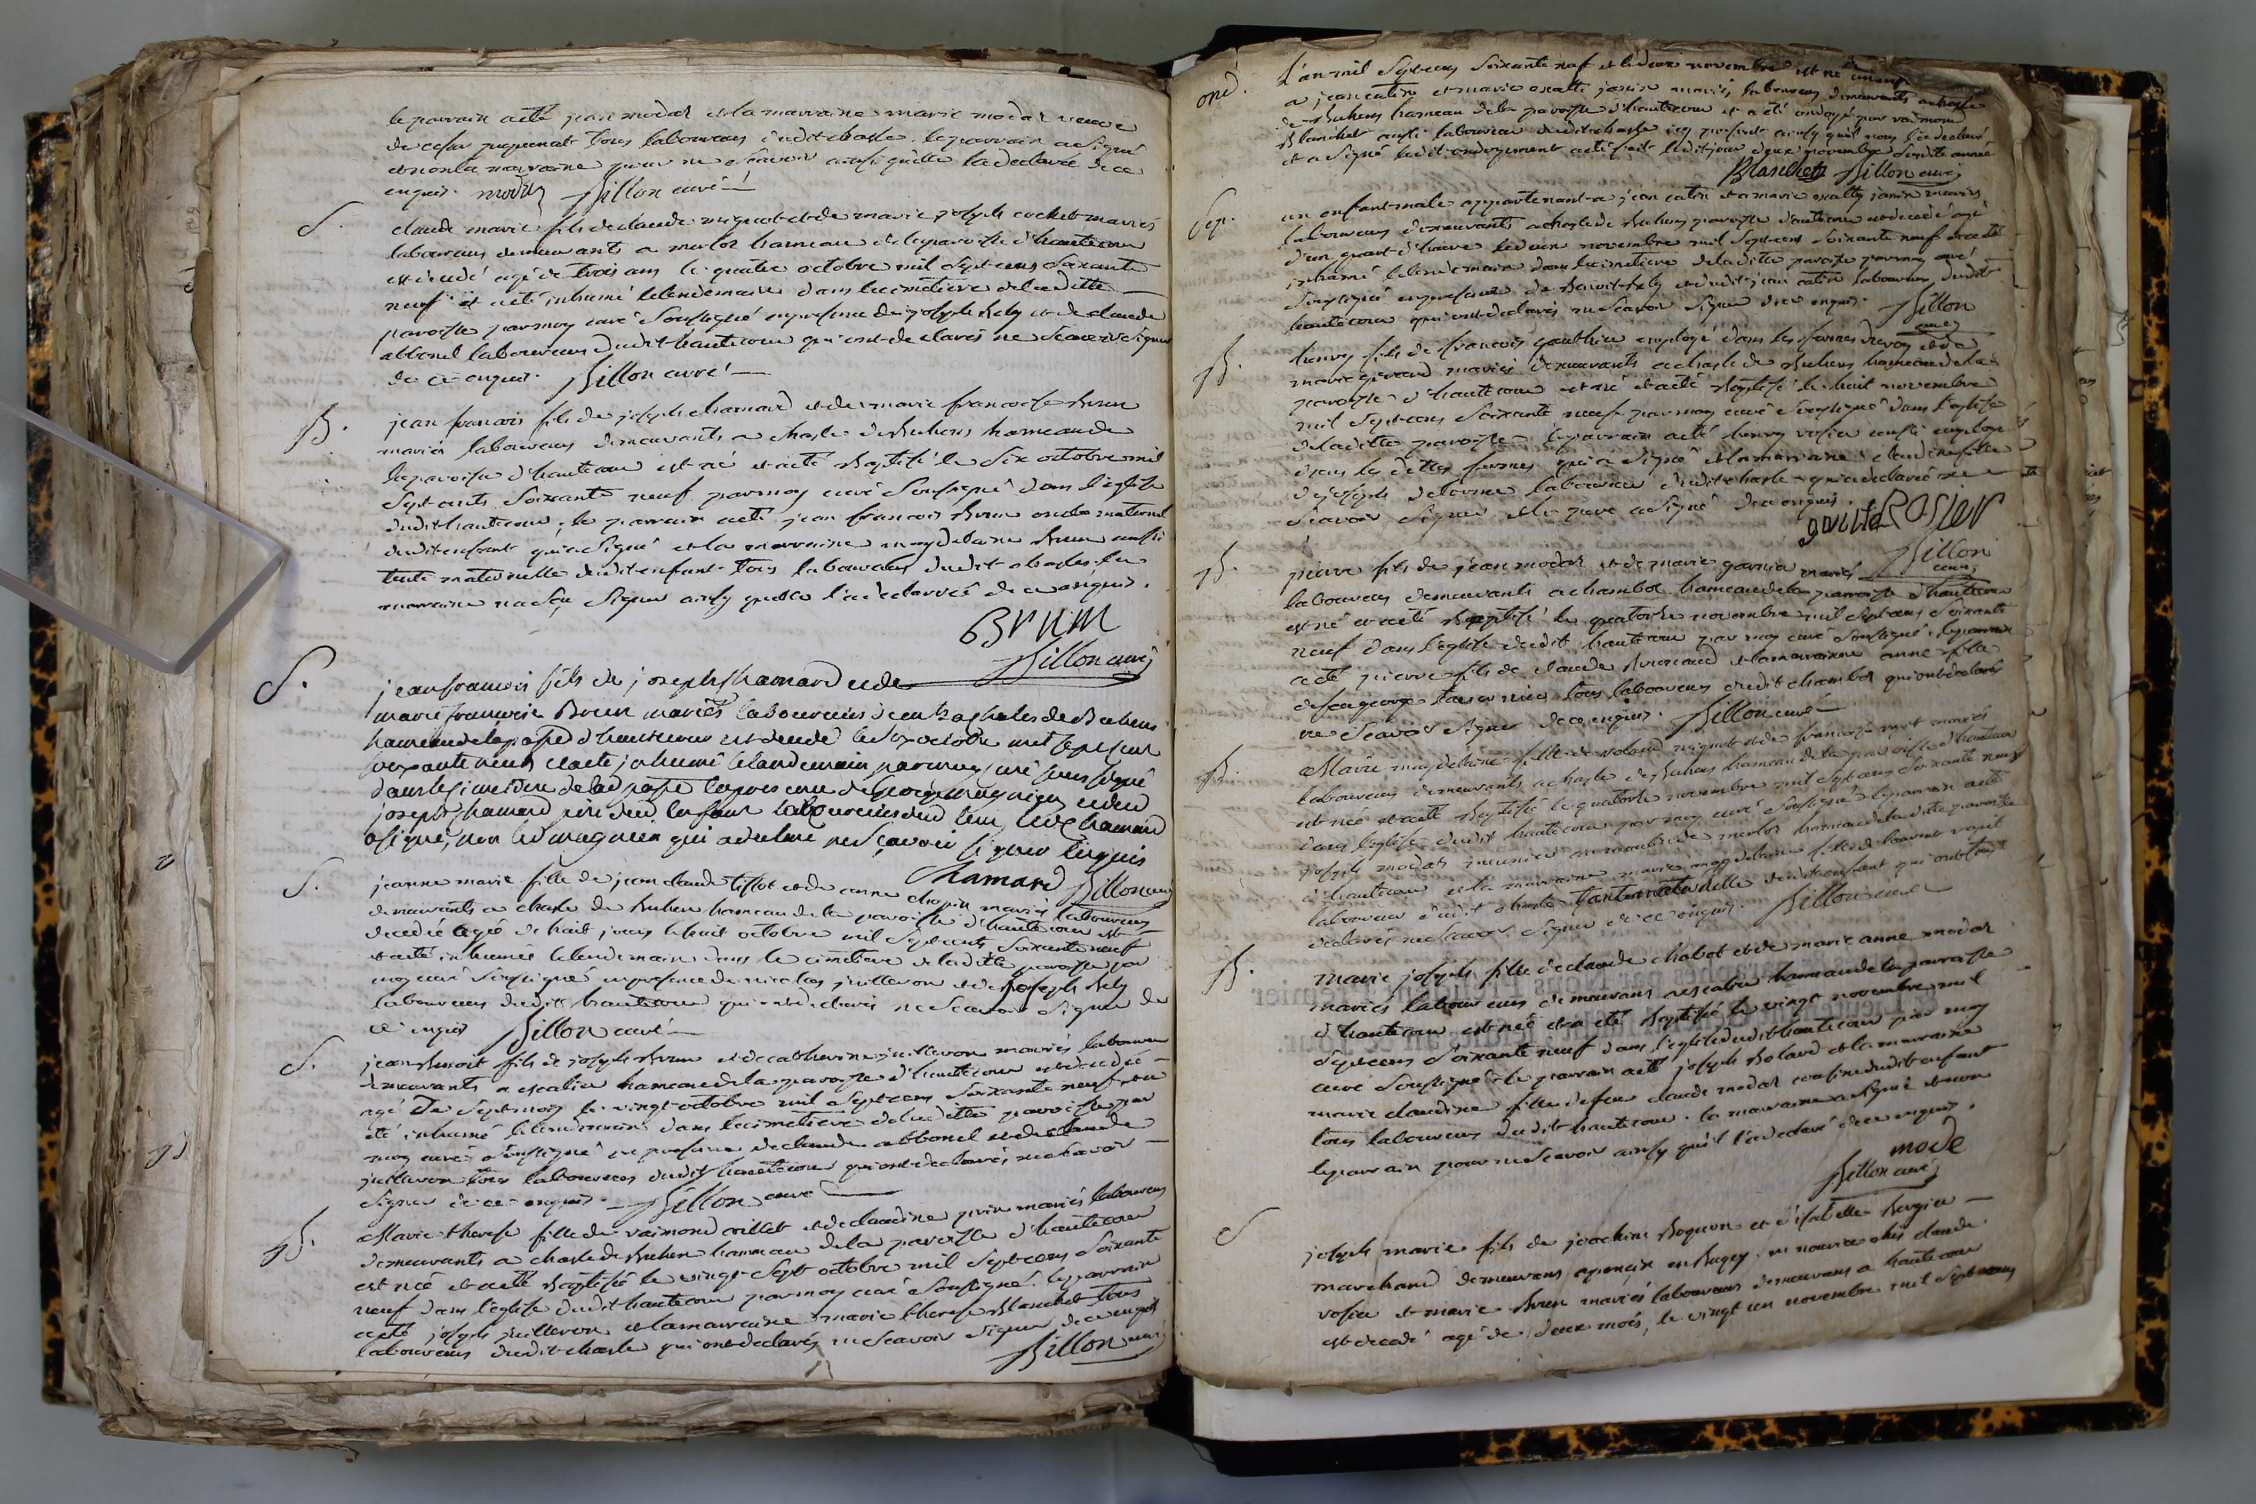 le parrain a été jean modas et la marraine marie modas veuve
de cesar puquenat tous laboureurs dudit chasle. le parrain a signé
et non la marraine pour ne sçavoir ainsy qu'elle l'a declaré de ce
enquis. modas Billon curé
S. claude marie fils de claude mignot et de marie joseph cochet mariés
laboureurs demeurants a merloz hameau de la paroisse d'hautecour
est décédé agé de trois ans le quatre octobre mil sept cens soixante
neuf et a été inhumé le lendemain dans le cimetiere de la ditte
paroisse par moy curé soussigné en presence de joseph Rely et de claude
abbonel laboureurs dudit hautecour qui ont declarés ne sçavoir signer
de ce enquis. Billon curé
B. jean francois fils de joseph chamard et de marie francoise Brun
mariés laboureurs demeurants a chasle de Buhens hameau de
la paroisse d'hautecour est né et a été Baptisé le six octobre mil
sept cents soixante neuf par moy curé soussigné dans l'eglise
dudit hautecour. le parrain a été jean francois Brun oncle maternel
dudit enfant qui a signé et la marraine magdelaine Brun aussi
tente maternelle dudit enfant tous laboureurs dudit chasles. la
marraine n'a sçu signer ainsy qu'elle l'a declaré de ce enquis.
BRUN
Billon curé
S. jean francois fils de joseph Chamard et de
marie francoise Brun mariés laboureurs a chasles de Buhens
hameau de la paroisse d'hautecour est décédé le sept octobre mil sept cent
soixante neuf et a été inhumé le landemain par moy curé soussigné
dans le simetiere de lad paroisse en presence de George magnien et dud
joseph Chamard pere dud enfant laboureurs dud lieu led Chamard
a signé, non led magnien qui a declaré ne sçavoir signer enquis
Chamard Billon curé
S. jeanne marie fille de jean claude tissot et de anne chopin mariés laboureurs
demeurants a chasle de Buhen hameau de la paroisse d'hautecour est
décédée agée de huit jours le huit octobre mil sept cents soixante neuf
et a été inhumée le lendemain dans le cimetiere de la ditte paroisse par
moy curé soussigné en presence de nicolas juilleron et de joseph Rely
laboureurs dudit hautecour qui ont declarés ne sçavoir signer de
ce enquis Billon curé
S. jean Benoit fils de joseph Brun et de catherine juilleron mariés laboureurs
demeurants a escalier hameau de la paroisse d'hautecour est décédé
agé de sept mois le vingt octobre mil sept cens soixante neuf, et a
été inhumé le lendemain dans le cimetiere de la ditte paroisse par
moy curé soussigné en presence de claude abbonel et de claude
juilleron tous laboureurs dudit hautecour qui ont declarés ne sçavoir
signer de ce enquis. Billon curé
B. Marie therese fille de raimond millet et de claudine mariés laboureurs
demeurants a chasle de Buhen hameau de la paroisse d'hautecour
est née et a été Baptisée le vingt sept octobre mil sept cens soixante
neuf dans l'eglise dudit hautecour par moy curé soussigné. le parrain
a été joseph juilleron et la marraine marie therese Blanchet tous
laboureurs dudit chasle qui ont declarés ne sçavoir signer de ce enquis
Billon curé
ond. L'an mil sept cens soixante neuf et le deux novembre est né un enfant
a jean catin et marie janin mariés laboureurs demeurants a chasle
de Buhens hameau de la paroisse d'hautecour et a été ondoyé par raimond
Blanchet aussi laboureur dudit chasle icy present ainsy qu'il nous l'a declaré
et a signé ledit ondoyement a été fait ledit jour deux novembre susdite année
Blanchet Billon curé
Sep. un enfant male appartenant a jean catin et a marie janin mariés
laboureurs demeurants a chasle de Buhens paroisse d'hautecour est décédé agé
d'un quart d'heure le deux novembre mil sept cens soixante neuf et a été
inhumé le lendemain dans le cimetiere de la ditte paroisse par moy curé
soussigné en presence de Benoit Rely et dudit jean catin laboureurs dudit
hautecour qui ont declarés ne sçavoir signer de ce enquis. Billon
curé
B. henry fils de francois gauthier employé dans les fermes du roy et de
marie mariés demeurants a chasle de Buhens hameau de la
paroisse d'hautecour est né et a été Baptisé le huit novembre
mil sept cens soixante neuf par moy curé soussigné dans l'eglise
de la ditte paroisse. le parrain a été henry rosier aussi employé
dans les dittes fermes qui a signé et la marraine claudine fille
de joseph delorme laboureur dudit chasle qui a declaré ne
sçavoir signer et le pere a signé de ce enquis.
gautié ROSIER
Billon
curé
B. pierre fils de jean modas et de marie garnier mariés
laboureurs demeurants a chambos hameau de la paroisse d'hautecour
est né et a été Baptisé le quatorze novembre mil sept cens soixante
neuf dans l'eglise dudit hautecour par moy curé soussigné. le parrain
a été pierre fils de claude et la marraine anne fille
de feu george tous laboureurs dudit chambos qui ont declarés
ne sçavoir signer de ce enquis. Billon curé
B. Marie magdelaine fille de roland mignot et de francoise mariés
laboureurs demeurants a chasle de Buhens hameau de la paroisse d'hautecour
est née et a été Baptisée le quatorze novembre mil sept cens soixante neuf
dans l'eglise dudit hautecour par moy curé soussigné. le parrain a été
joseph modas meunier au moulin de merloz hameau de la ditte paroisse
d'hautecour et la marraine marie magdelaine fille de
laboureur dudit chasle tante maternelle dudit enfant qui ont tous
declarés ne sçavoir signer de ce enquis. Billon curé
B. marie joseph fille de claude chabot et de marie anne modas
mariés laboureurs demeurans a escalier hameau de la paroisse
d'hautecour est née et a été Baptisée le vingt novembre mil
sept cens soixante neuf dans l'eglise dudit hautecour par moy
curé soussigné le parrain a été joseph Bolard et la marraine
marie claudine fille de feu claude modas cousine dudit enfant
tous laboureurs dudit hautecour. la marraine a signé et non
le parrain pour ne sçavoir ainsy qu'il l'a declaré de ce enquis.
mode
Billon curé
S joseph marie fils de joachim Boquon et d'isabelle Bergier
marchand demeurans a poncin en Bugey, en nourice chés claude
rosier et marie Brun mariés laboureurs demeurans a hautecour
est décédé agé de deux mois, le vingt un novembre mil sept cens